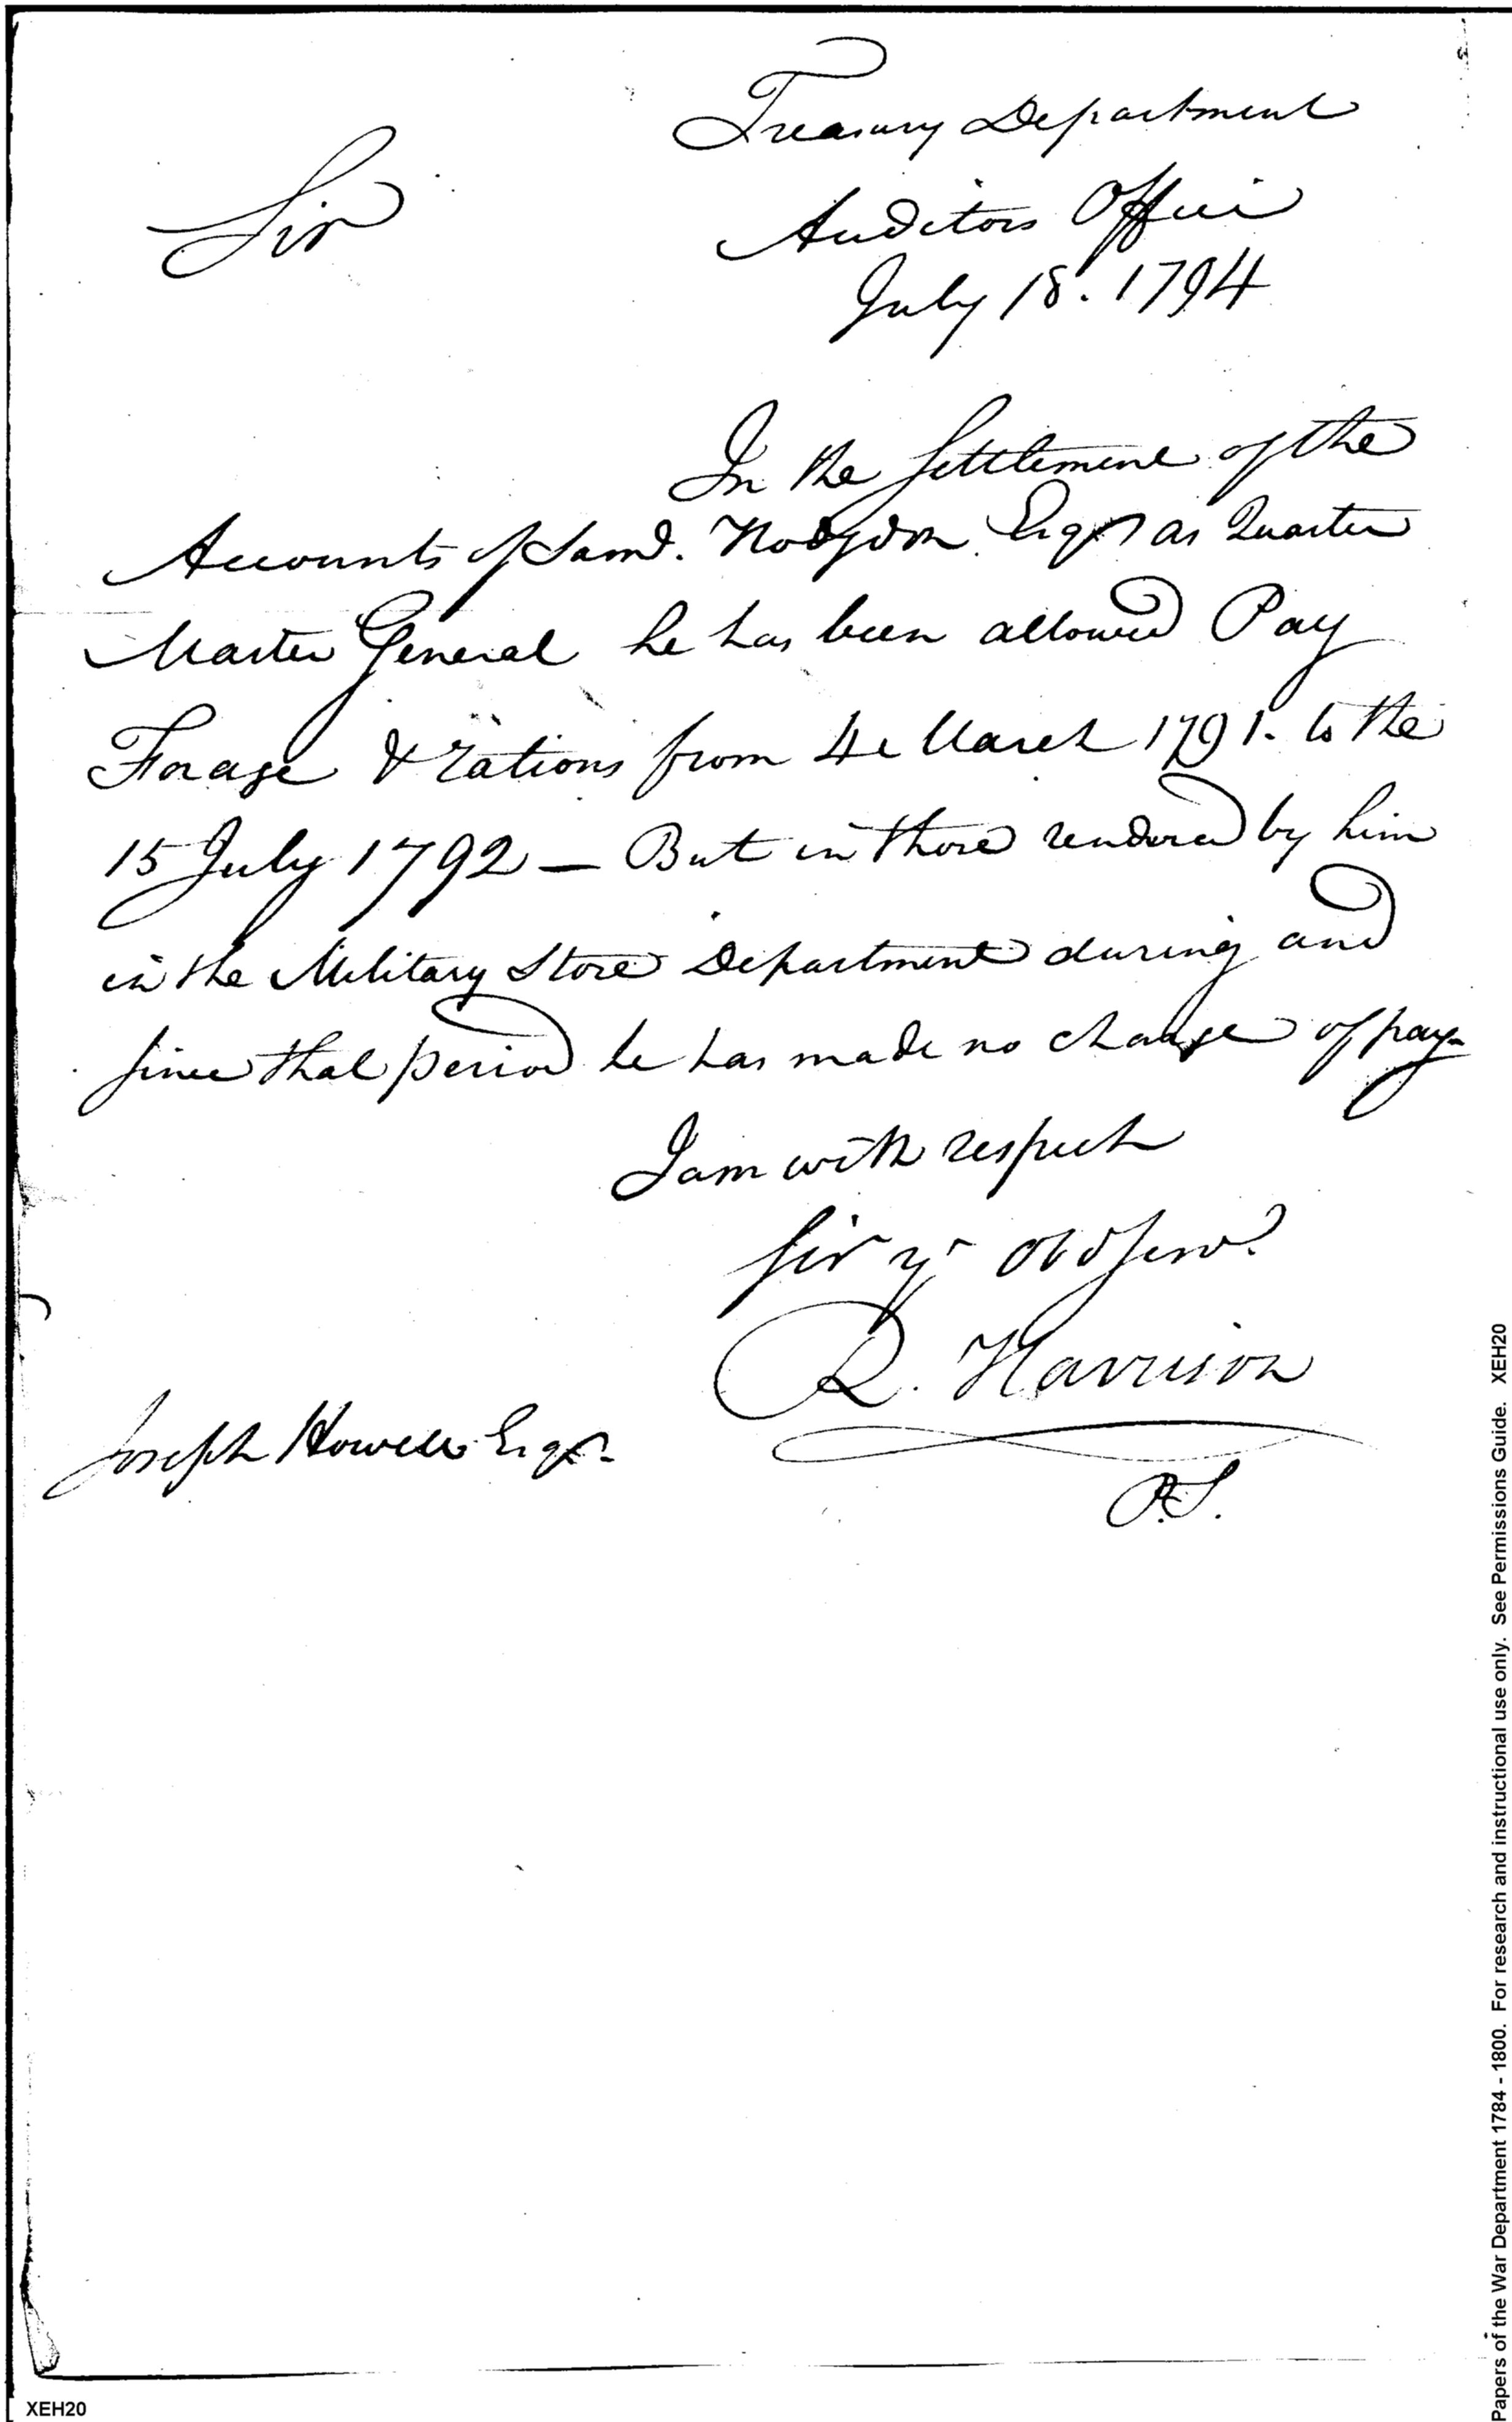 Treasury Department
Sir
Auditors Office
July 18. 1794
In the Settlement of the
Accounts of Saml. Hodgdon Esqr as Quarter
Master General he has been allowed Pay
Forage & rations from 4e March 1791. to the
15 July 1792 — But in those rendered by him
in the Military Store Department during and
since that period he has made no charge of pay-
I am with respect
Sir yr Obd Serv.
R. Harrison
Joseph Howell Esqr.
Papers of the War Department 1784 - 1800. For research and instructional use only. See Permissions Guide. XEH20
XEH20